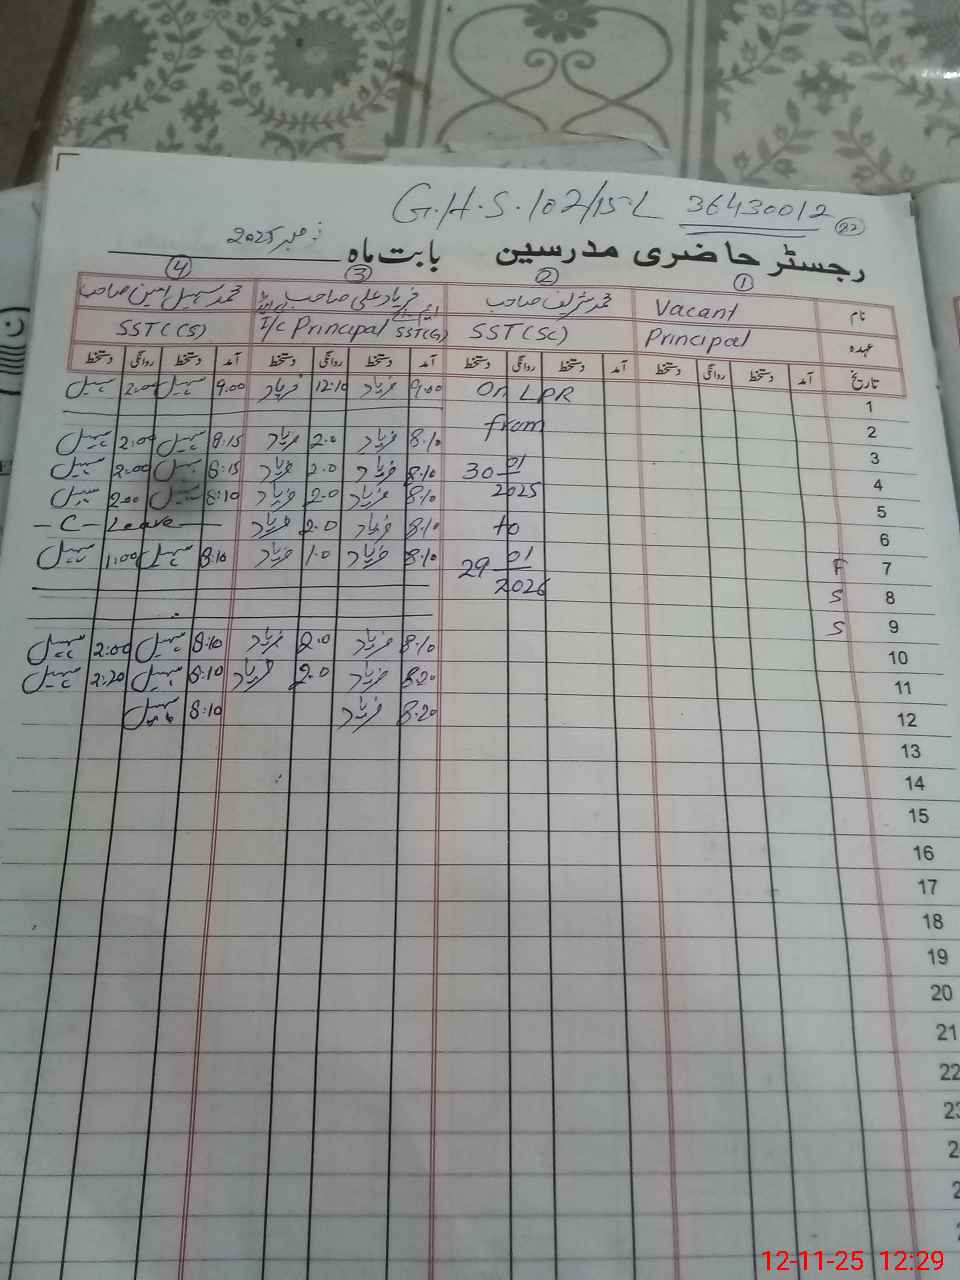 G.H.S. 102/15-L 36430012
رجسٹر حاضری مدرسین بابت ماہ نومبر 2025
نام ① Vacant ② محمد شریف صاحب ③ فریاد علی صاحب ④ محمد سہیل امین صاحب
عہدہ Principal SST(SC) I/C Principal SST(G) SST(CS)
تاریخ آمد دستخط روانگی دستخط آمد دستخط روانگی دستخط آمد دستخط روانگی دستخط آمد دستخط روانگی دستخط
1 On LPR 9.00 فریاد 12:10 فریاد 9.00 سہیل 2:00 سہیل
2 from
3 8.10 فریاد 2.0 فریاد 8:15 سہیل 2:00 سہیل
4 30 01 2025 8.10 فریاد 2.0 فریاد 8:15 سہیل 2:00 سہیل
5 8.10 فریاد 2.0 فریاد 8:10 سہیل 2:00 سہیل
6 to 8.10 فریاد 2.0 فریاد - C - Leave -
7 F 29 01 2026 8.10 فریاد 1.0 فریاد 8:10 سہیل 1:00 سہیل
8 S
9 S
10 8.10 فریاد 2.0 فریاد 8:10 سہیل 2:00 سہیل
11 8.20 فریاد 2.0 فریاد 8:10 سہیل 2:20 سہیل
12 8.20 فریاد 8:10 سہیل
13
14
15
16
17
18
19
20
21
22
12-11-25 12:29